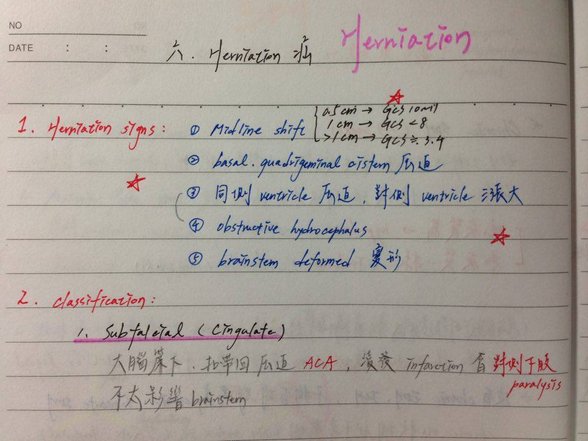 NO
DATE : :
六. Herniation 疝 Herniation
1. Herniation signs: ① Midline shift
0.5cm → GCS 10以下
1cm → GCS < 8
>1cm → GCS ≈ 3.4
② basal. quadrigeminal cistern 壓迫
③ 同側 ventricle 壓迫, 對側 ventricle 漲大
④ obstructive hydrocephalus
⑤ brainstem deformed 變形
2. classification:
1. Subfalcial (Cingulate)
大腦鐮下. 扣帶回壓迫 ACA, infarction 會對側下肢
paralysis
不太影響 brainstem